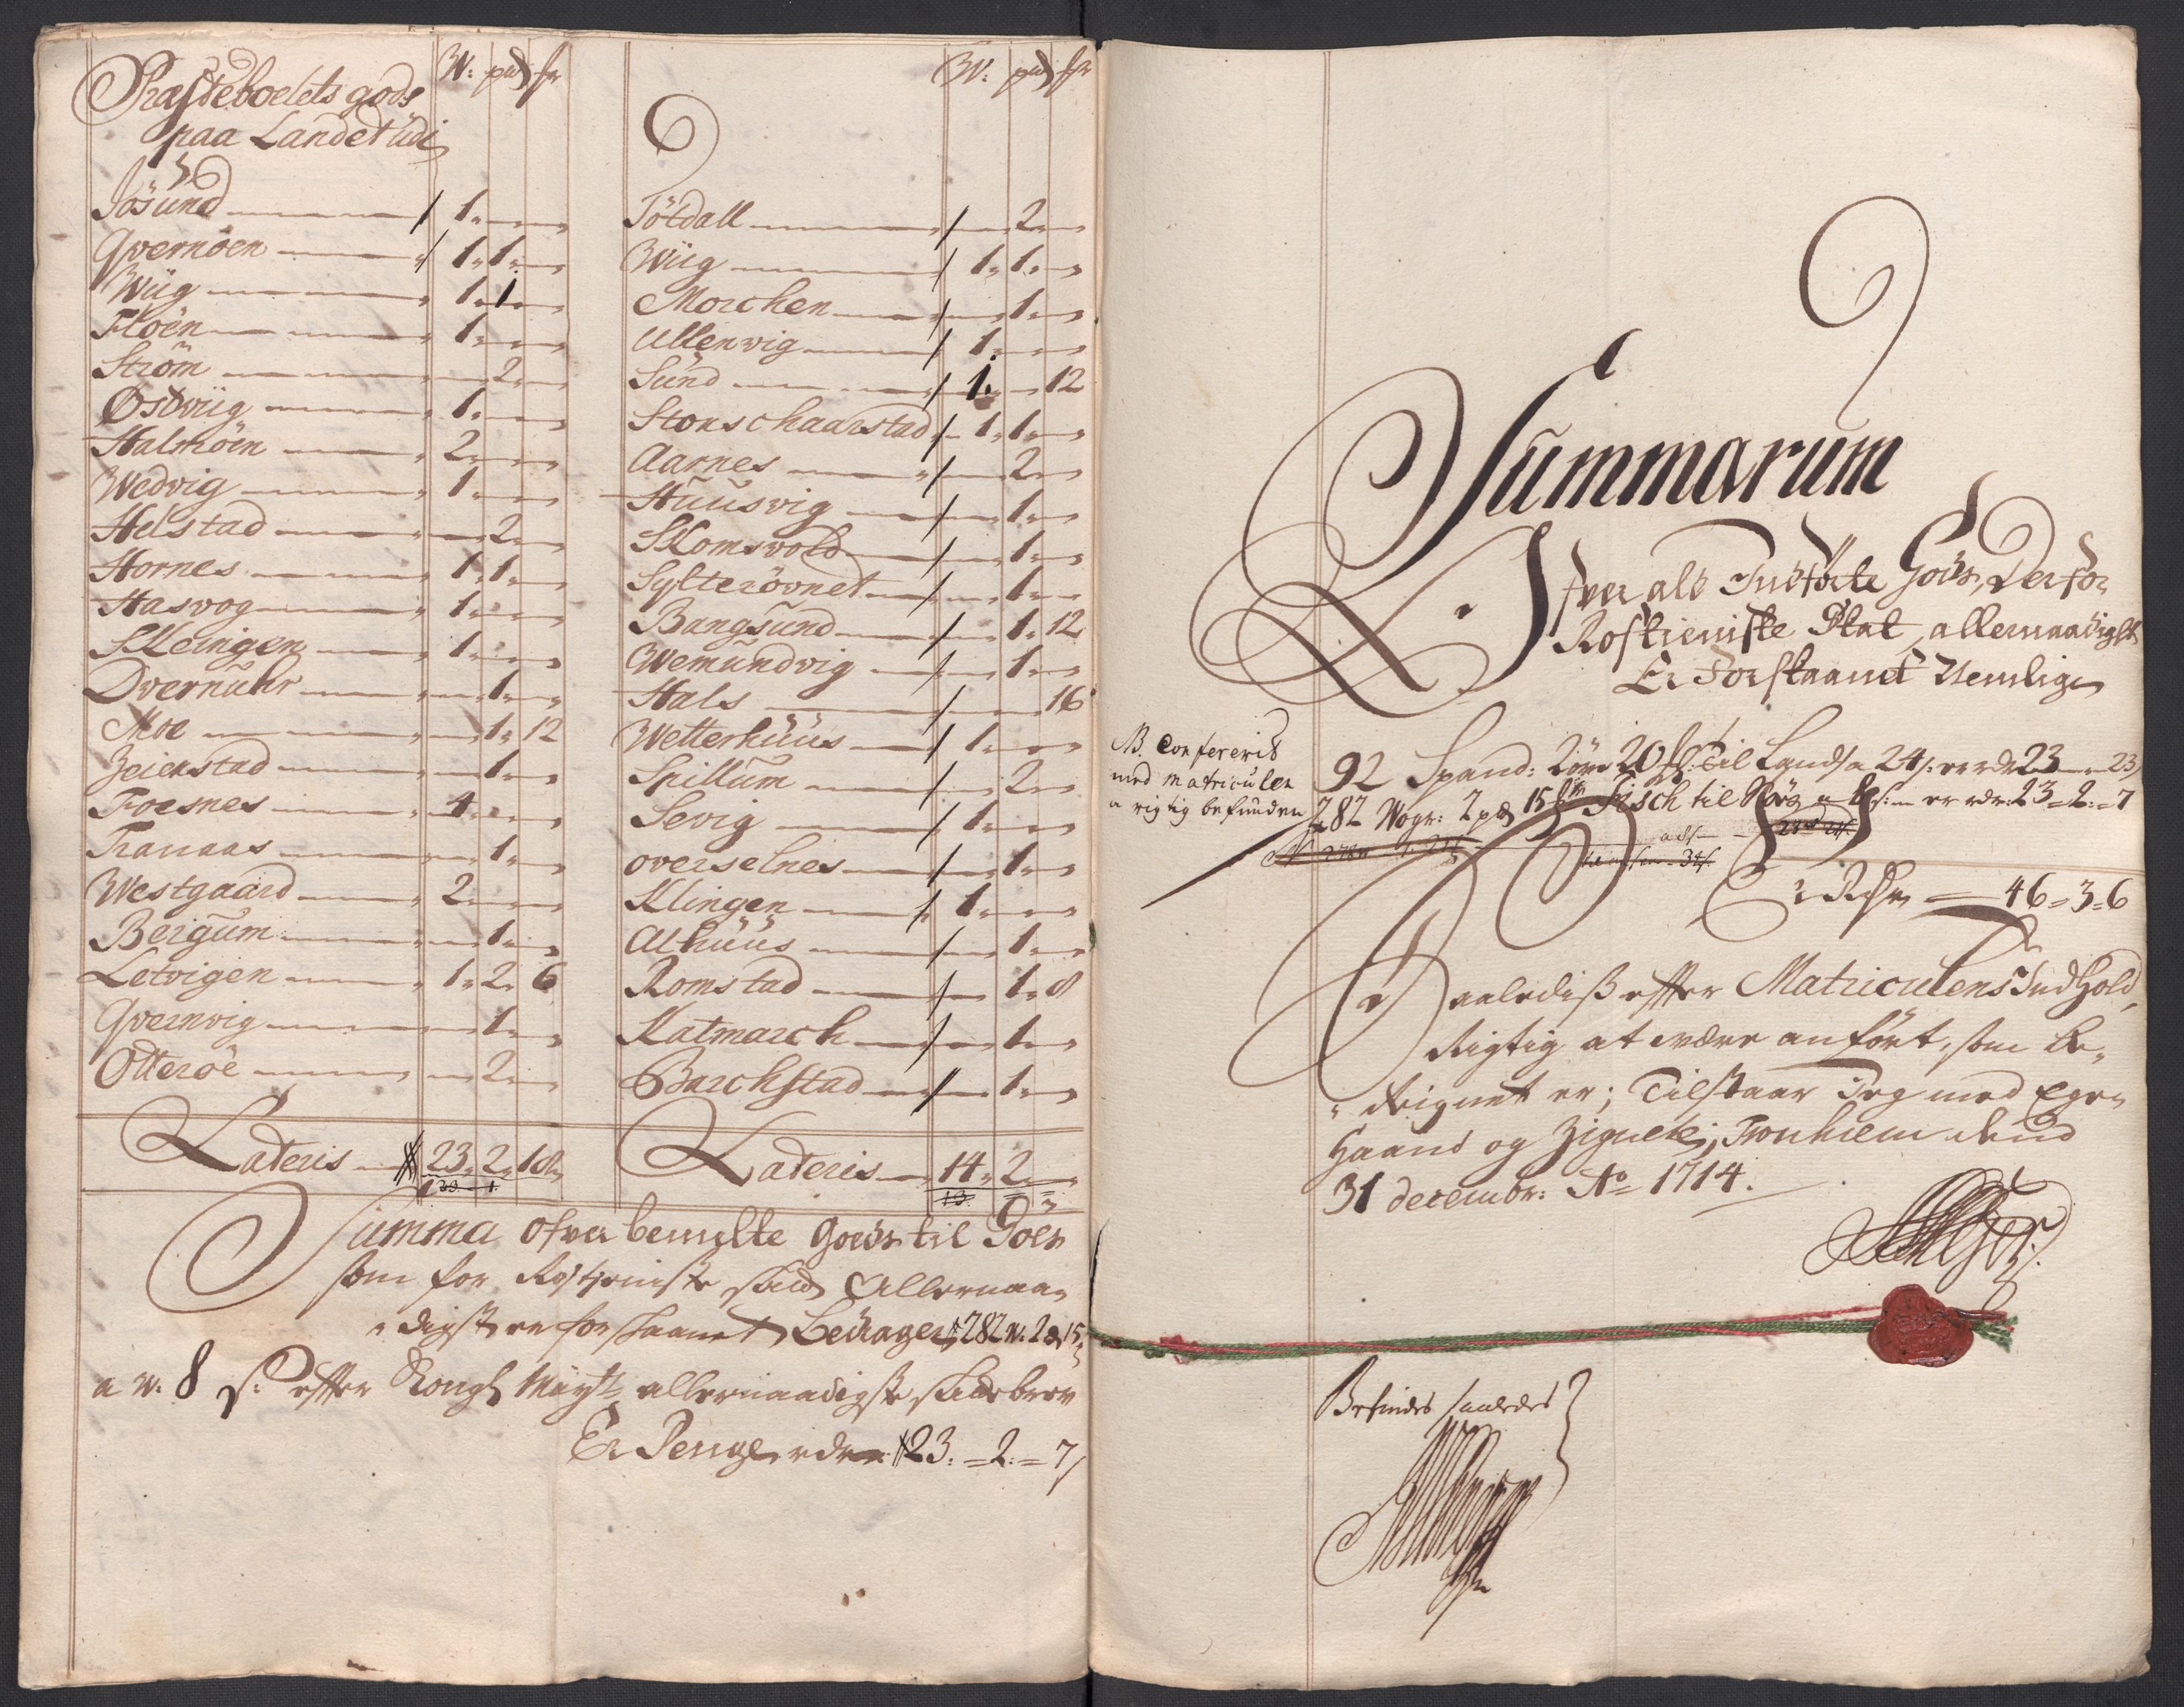 Præsteboelets gods W: pd fr
paa Landet udi
Jösund 1
Qvernöen 1 1
Wiig 1 1
Floen 1
Ström 2
Östviig 1
Halmöen 2
Wedvig 1
Helstad 2
Hornes 1 1
Hasvog 1
Skleingen 1
Dvernuhr 1
Moe 1 12
Zeierstad 1
Foesnes 4
Tranaas 1
Westgaard 2
Bergum 1
Letvigen 1 2 6
Qvernvig 1
Otteröe 2
Lateris 23 2 18
W: pd fr
Jötdall 2
Wiig 1 1
Morchen 1
Ullenvig 1
Sund 1 12
Stonschaarstad 1 1
Aarnes 2
Huusvig 1
Sklomsvold 1
Sylterövnet 1
Bangsund 1 12
Wemundvig 1
Hals 16
Wetterhuus 1
Spillum 2
Sevig 1
overselnes 1
Klingen 1
Alhuus 1
Romstad 1 8
Katmarch 1
Barchstad 1
Lateris 14 2
Summa ofver bemelte goeds til
som for Rostjeniste Allernaa
digst er forskaanet Bedrager 282 W: 2 pd 15
a W: 8 s: effter Kongl Mayts allernaadigste brev
Er Penge rdr 23 = 2 = 7
Summarum
Ofver alt Indförte Gods, der for
Rostieniste Skat allernaadigst
Er Forskaanet Nemlig
NB. Confererit
med matriculen
a rigtig befunden
92 Spand: 2 öre 20 til Landsk a 24 s: er rdr 23 23
282 Wogr: 2 pd 15 Fisch til a 8 s: er rdr: 23 = 2 = 7
Er Rdr 46 = 3 = 6
Saaledis effter Matriculens Indhold
Rigtig at være anfört, som be
Reignet er; Tilstaar Jeg med Egen
Haand og Zignete; Tronhiem dend
31 decembr: Ao 1714.
Befindes saaledes